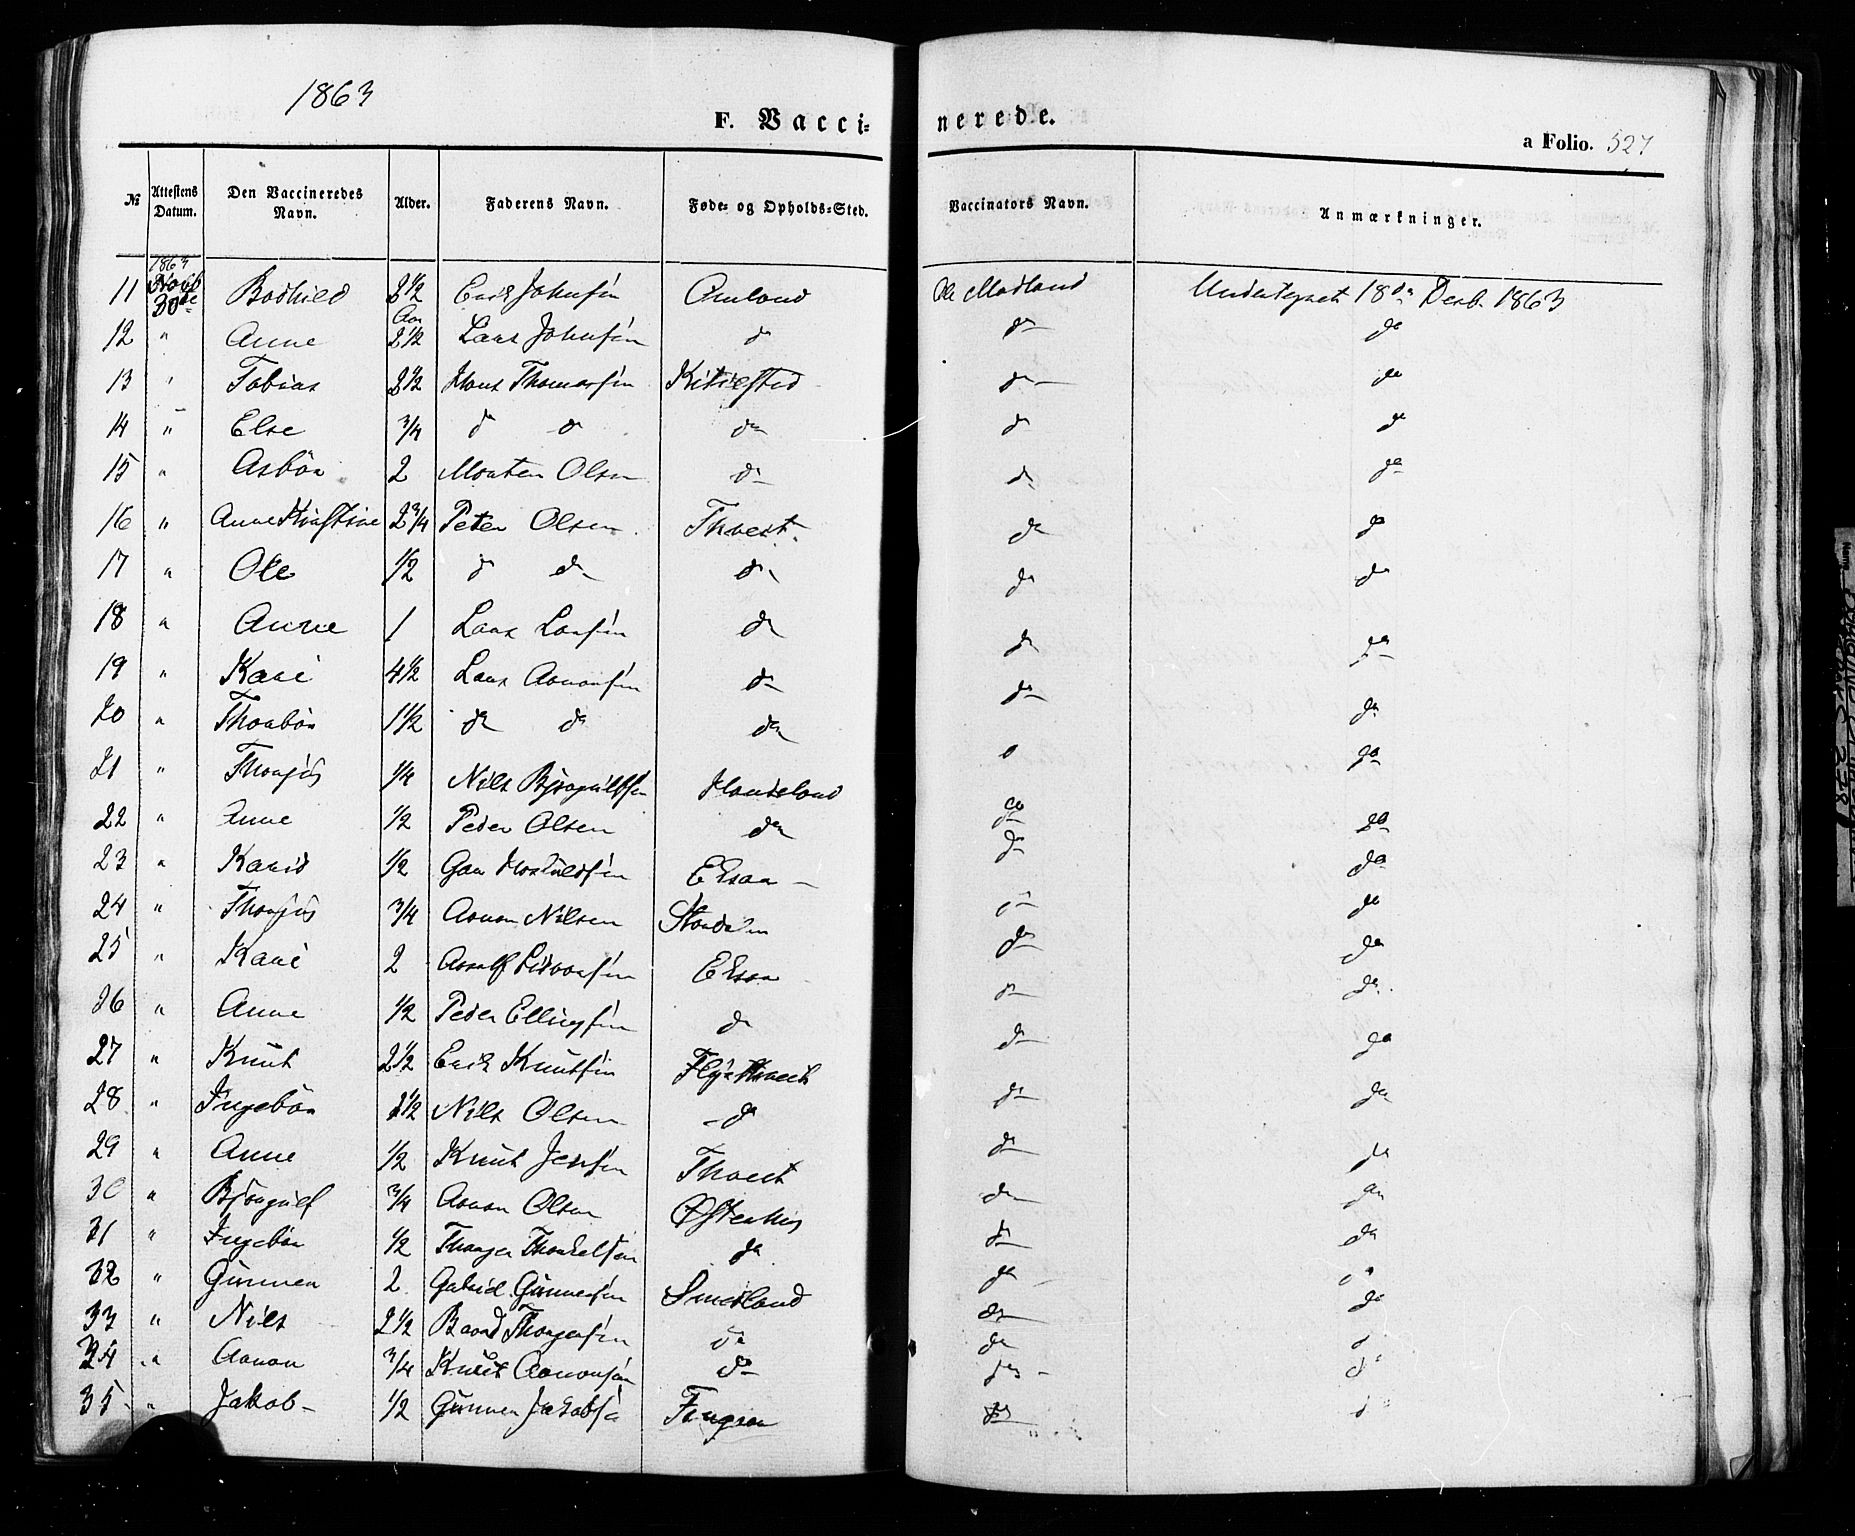 1863
F. Vacci-
nerede.
a Folio. 527
№ Attestens Datum. Den Vaccineredes Navn. Alder. Faderens Navn. Føde- og Opholds-Sted. Vaccinators Navn. Anmærkninger.
1863
11 Novb 30de Bodhild 2½ Erik Johnsen Omland Ole Madland Undertegnet 18de Decb. 1863
Aar
12 " Anne 2½ Lars Johnsen do do do
13 " Tobias 2½ Hans Thomassen do do
14 " Else ¾ do do do do do
15 " Asbør 2 Morten Olsen do do do
16 " Anne Kirstine 2¾ Peter Olsen Thveit. do do
17 " Ole ½ do do do do do
18 " Anne 1 Lars Larsen do do do
19 " Kari 4½ Lars Aanonsen do do do
20 " Thorbør 1½ do do do do do
21 " ¼ Nils Bjørgulfsen Haugland do do
22 " Anne ½ Peder Olsen do do do
23 " Karid ½ Eksaa do do
24 " ¾ Aanon Nilsen do do
25 " Kari 2 Eksaa do do
26 " Anne ½ Peder Ellingsen do do do
27 " Knut 2½ Erik Knutsen do do
28 " Ingebør 2½ Nils Olsen do do do
29 " Anne ½ Knut Jensen Thveit do do
30 " Bjørgulf ¾ Aanon Olsen Østerhus do do
31 " Ingebør ½ Thorger Thorkelsen do do do
32 " Gunner 2 Gabriel Gunnersen Smedland do do
33 " Nils 2½ Baard Thorgersen do do do
34 " Aanon ¾ Knut Aanonsen do do do
35 " Jakob ½ Gunner Jakobsen do do